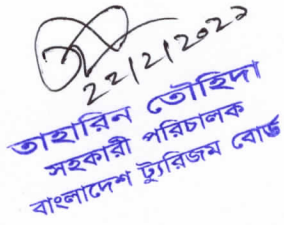 22/2/2022
তাহারিন তৌহিদা
সহকারী পরিচালক
বাংলাদেশ ট্যুরিজম বোর্ড